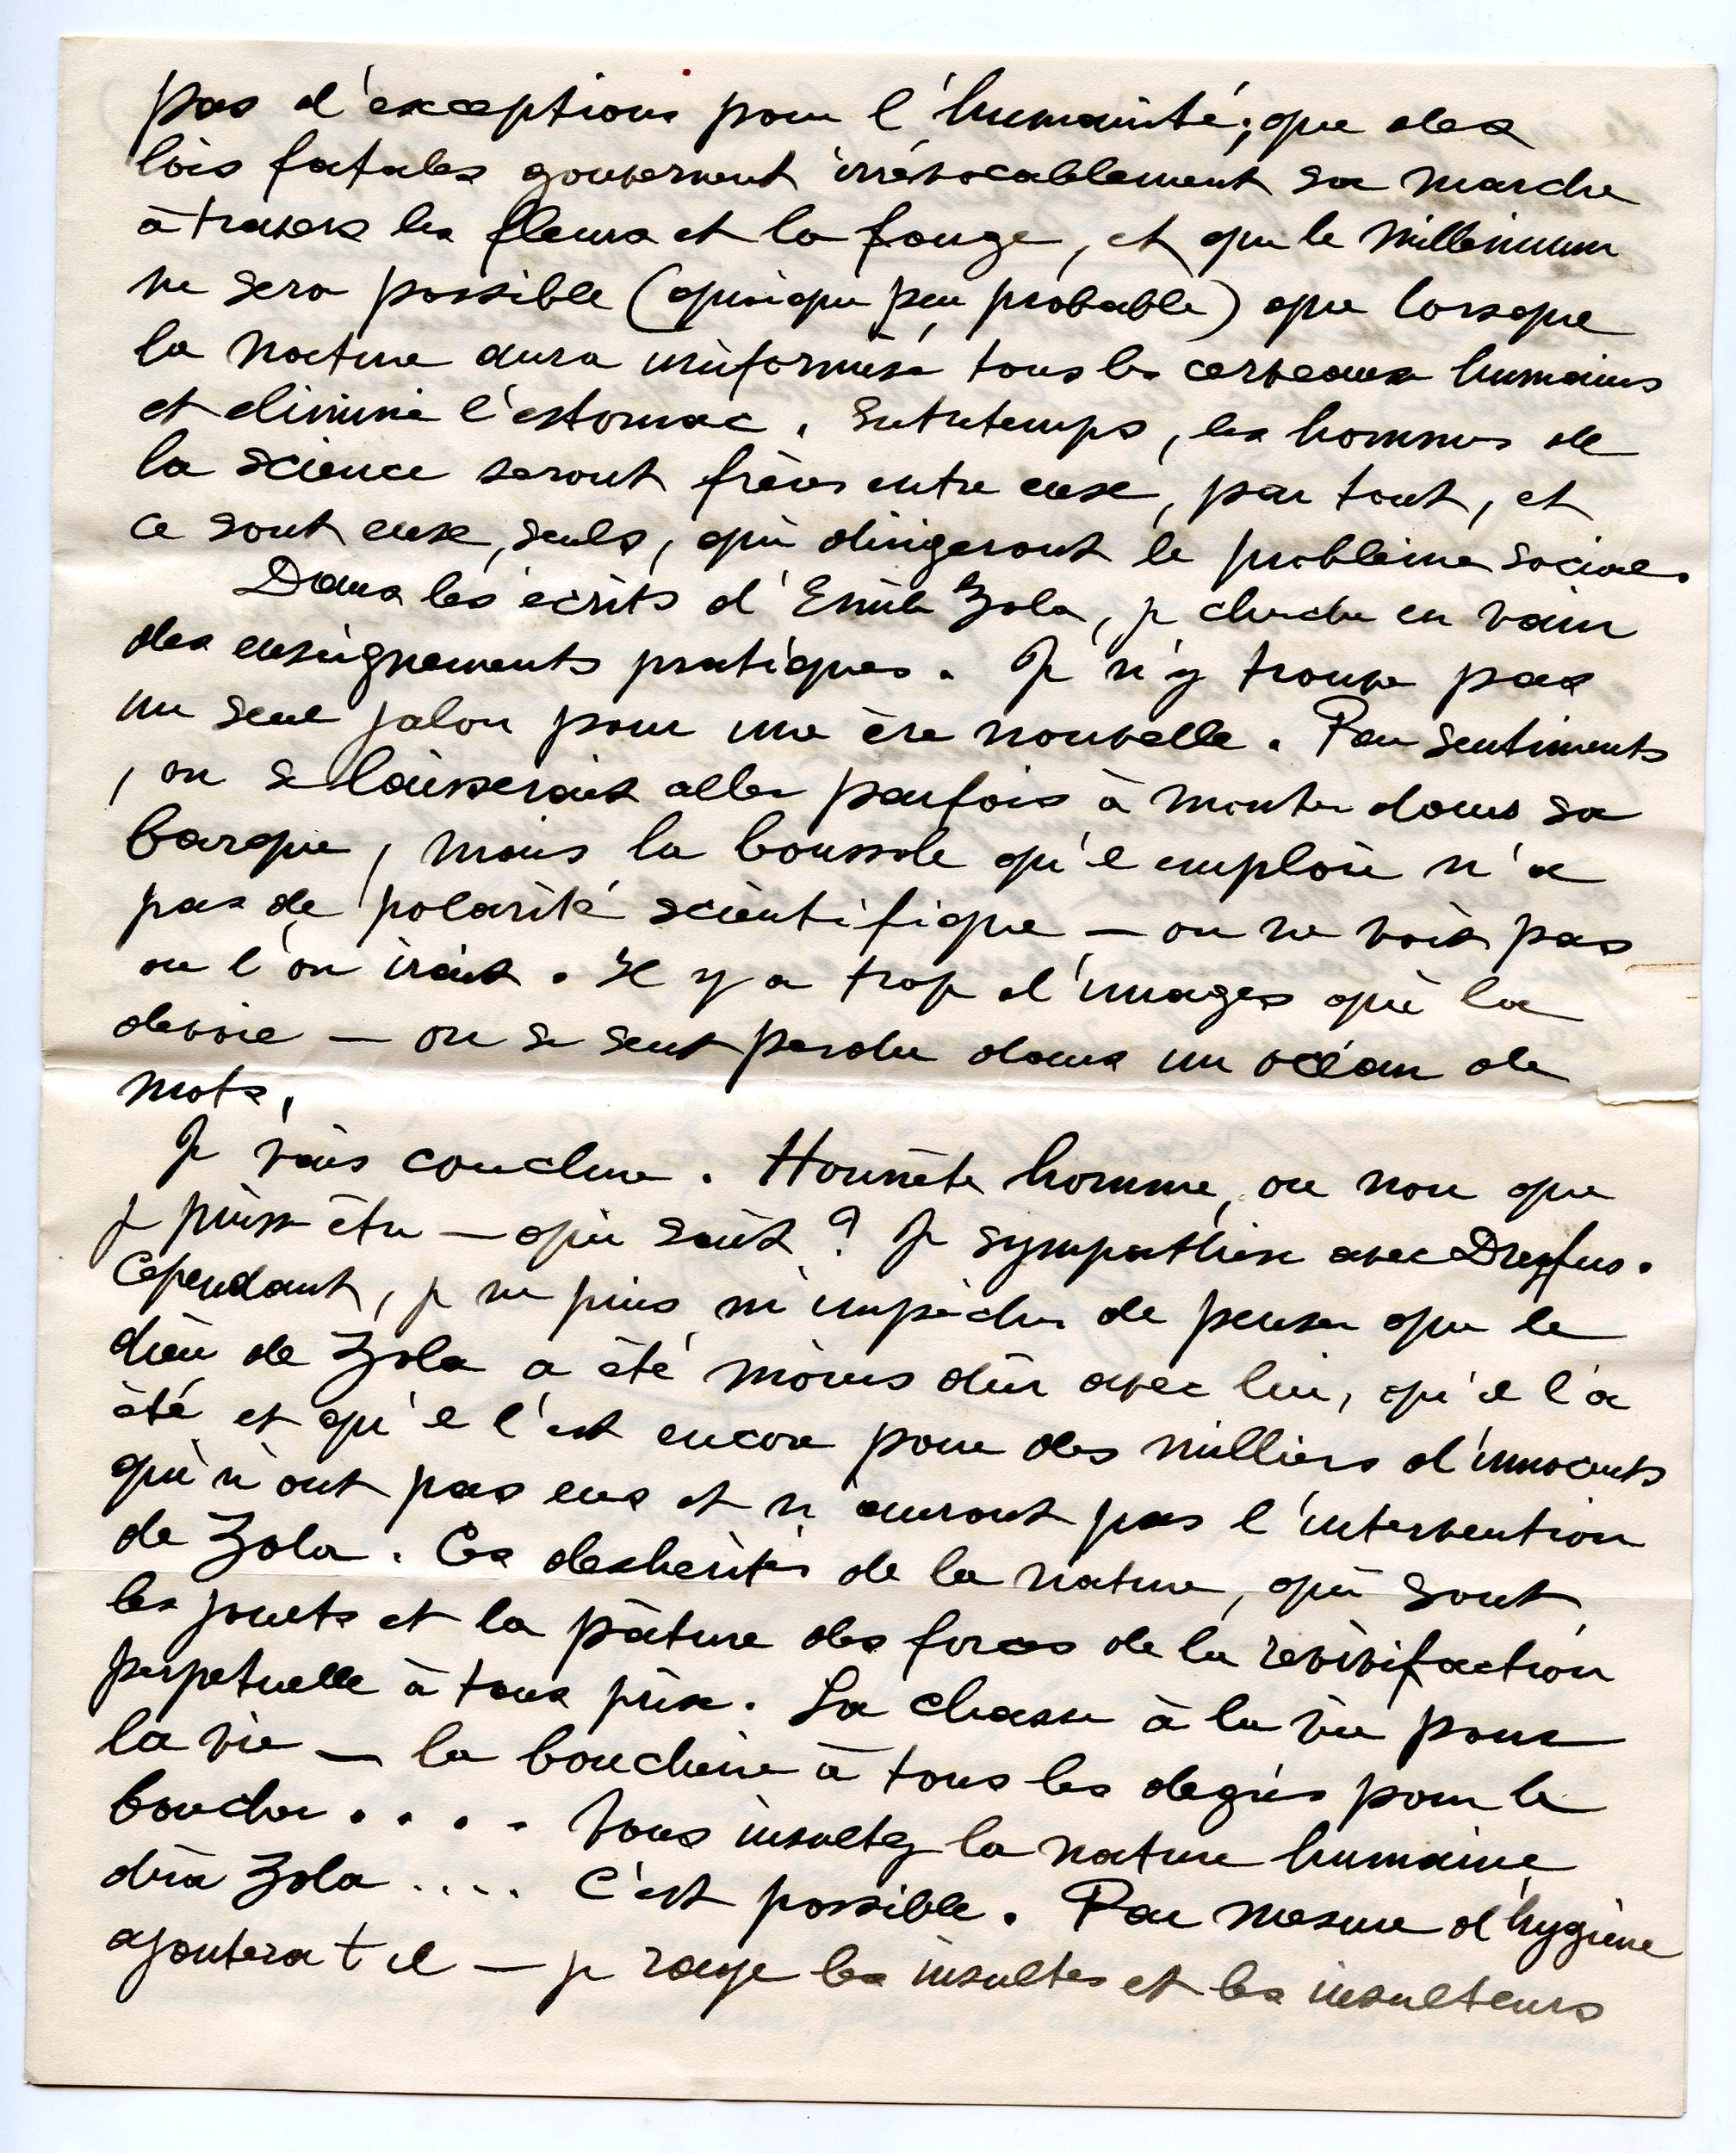 pas d'exceptions pour l'humanité; que des
lois fatales gouvernent irrévocablement sa marche
à travers les fleurs et la fange, et que le millenium
ne sera possible (quoique peu probable) que lorsque
la nature aura uniformisé tous les cerveaux humains
et eliminé l'estomac. Entretemps, les hommes de
la science seront frères entre eux, partout, et
ce sont eux, seuls, qui dirigeront le problème social.
Dans les écrits d'Emile Zola, je cherche en vain
des enseignements pratiques. Je n'y trouve pas
un seul jalon pour une ère nouvelle. Par sentiments
, on se laisserait aller parfois à monter dans sa
barque, mais la boussole qu'il emploie n'a
pas de polarité scientifique — on ne voit pas
ou l'on irait. Il y a trop d'images qui la
devoie — on se sent perdu dans un océan de
mots,
Je vais conclure. Honnête homme, ou non que
je puisse être — qui sait? Je sympathise avec Dreyfus.
Cependant, je ne puis m'empêcher de penser que le
dieu de Zola a été moins dûr avec lui, qu'il l'a
été et qu'il l'est encore pour des milliers d'innocents
qui n'ont pas eus et n'auront pas l'intervention
de Zola. Ces desherités de la nature, qui sont
les jouets et la pâture des forces de la révivifaction
perpetuelle à tous prix. La chasse à la vie pour
la vie — la boucherie à tous les degrés pour le
boucher.... Vous insultez la nature humaine,
dira Zola.... C'est possible. Par mesure d'hygiène
ajoutera t il — je raye les insultes et les insulteurs